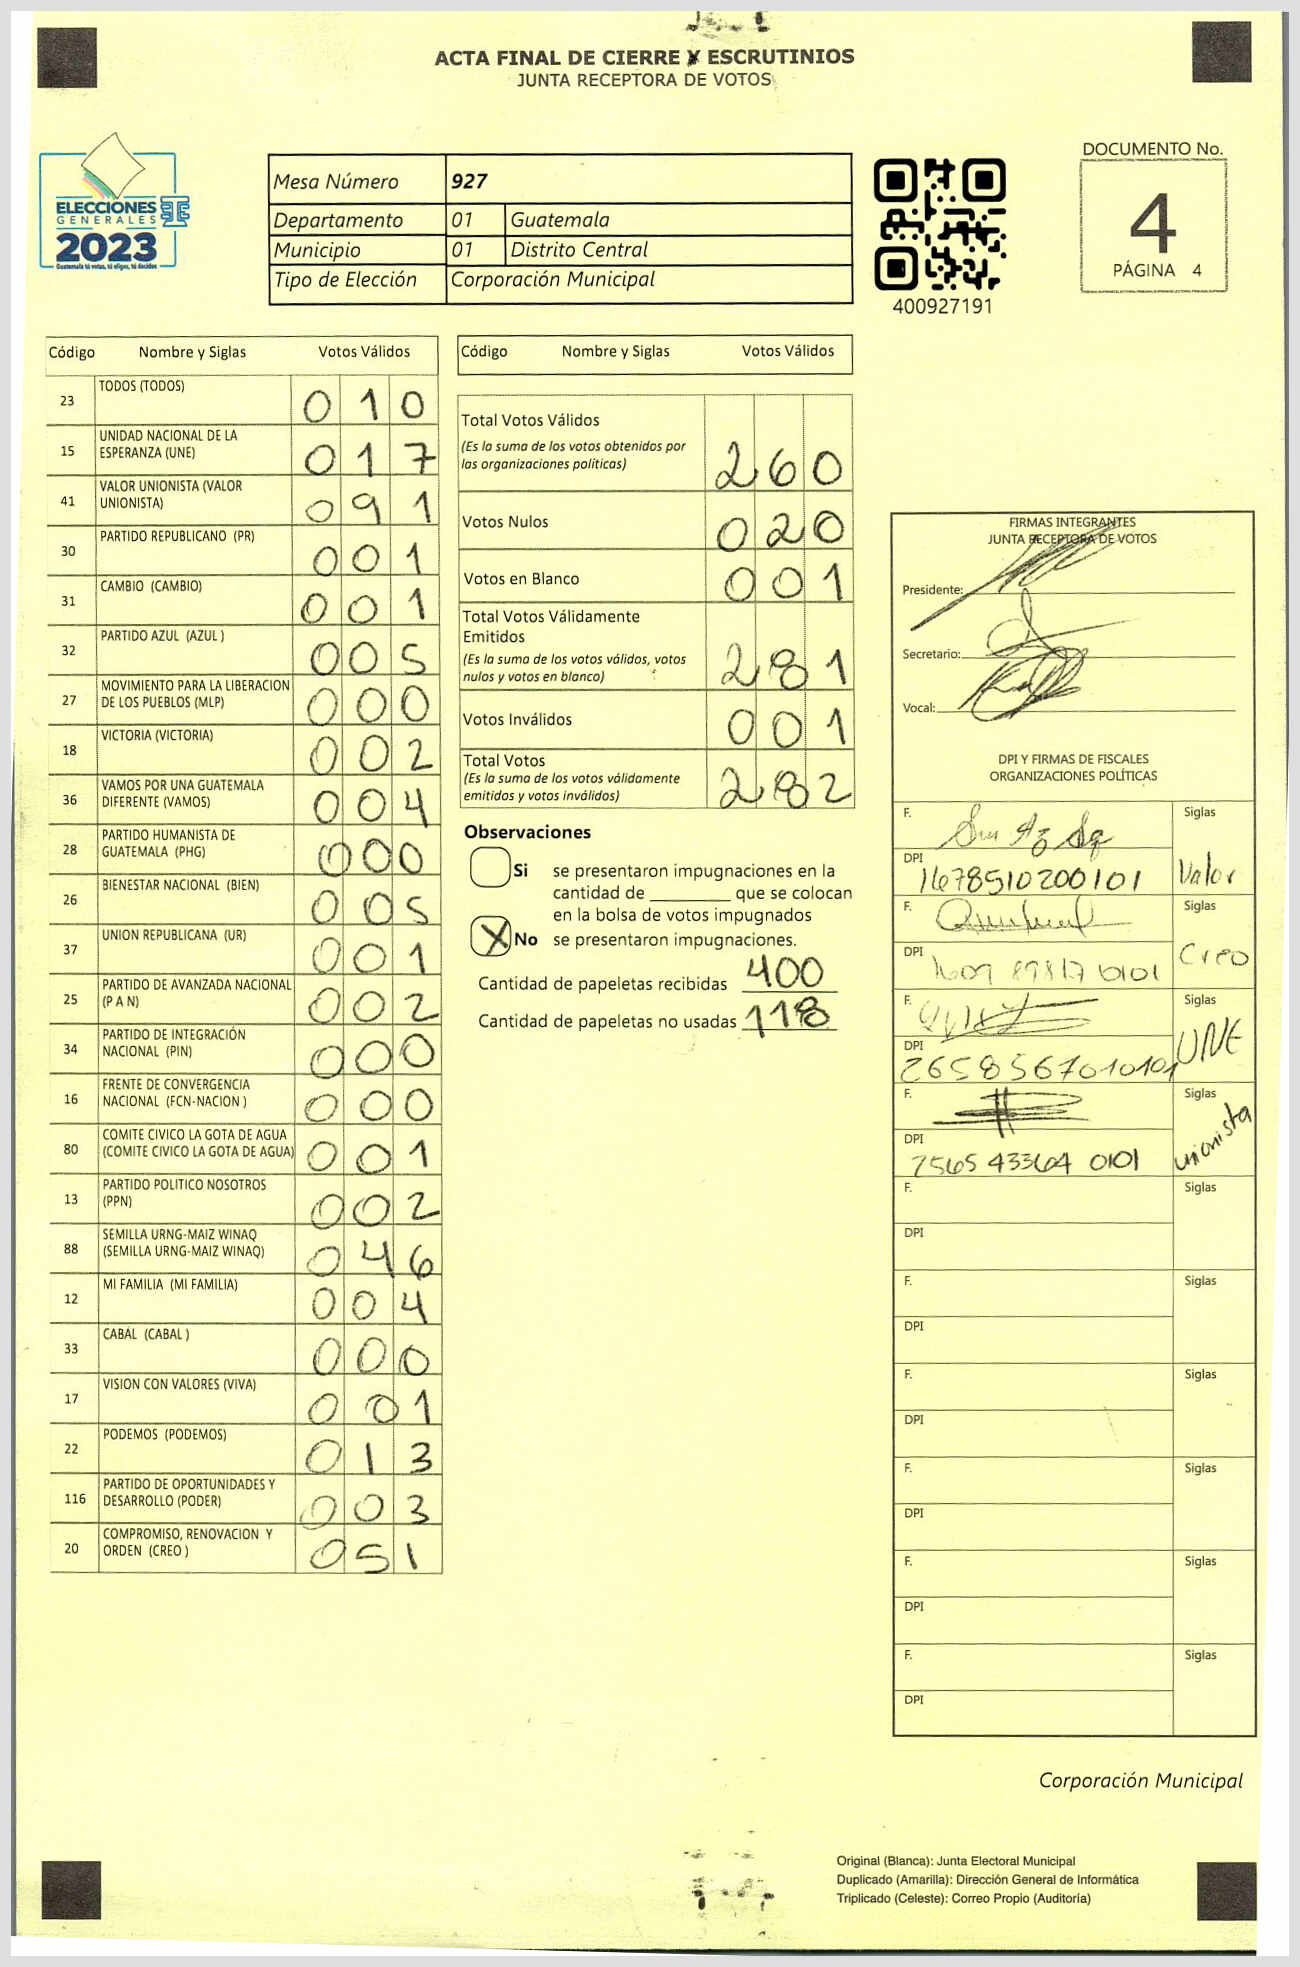 ACTA FINAL DE CIERRE Y ESCRUTINIOS
JUNTA RECEPTORA DE VOTOS
ELECCIONES
GENERALES
2023
Guatemala tú votas, tú eliges, tú decides
Mesa Número 927
Departamento 01 Guatemala
Municipio 01 Distrito Central
Tipo de Elección Corporación Municipal
400927191
DOCUMENTO No.
4
PÁGINA 4
Código Nombre y Siglas Votos Válidos
23 TODOS (TODOS) 010
15 UNIDAD NACIONAL DE LA
ESPERANZA (UNE) 017
41 VALOR UNIONISTA (VALOR
UNIONISTA) 091
30 PARTIDO REPUBLICANO (PR) 001
31 CAMBIO (CAMBIO) 001
32 PARTIDO AZUL (AZUL ) 005
27 MOVIMIENTO PARA LA LIBERACION
DE LOS PUEBLOS (MLP) 000
18 VICTORIA (VICTORIA) 002
36 VAMOS POR UNA GUATEMALA
DIFERENTE (VAMOS) 004
28 PARTIDO HUMANISTA DE
GUATEMALA (PHG) 000
26 BIENESTAR NACIONAL (BIEN) 005
37 UNION REPUBLICANA (UR) 001
25 PARTIDO DE AVANZADA NACIONAL
(P A N) 002
34 PARTIDO DE INTEGRACIÓN
NACIONAL (PIN) 000
16 FRENTE DE CONVERGENCIA
NACIONAL (FCN-NACION ) 000
80 COMITE CIVICO LA GOTA DE AGUA
(COMITE CIVICO LA GOTA DE AGUA) 001
13 PARTIDO POLITICO NOSOTROS
(PPN) 002
88 SEMILLA URNG-MAIZ WINAQ
(SEMILLA URNG-MAIZ WINAQ) 046
12 MI FAMILIA (MI FAMILIA) 004
33 CABAL (CABAL ) 000
17 VISION CON VALORES (VIVA) 001
22 PODEMOS (PODEMOS) 013
116 PARTIDO DE OPORTUNIDADES Y
DESARROLLO (PODER) 003
20 COMPROMISO, RENOVACION Y
ORDEN (CREO ) 051
Código Nombre y Siglas Votos Válidos
Total Votos Válidos
(Es la suma de los votos obtenidos por
las organizaciones políticas) 260
Votos Nulos 020
Votos en Blanco 001
Total Votos Válidamente
Emitidos
(Es la suma de los votos válidos, votos
nulos y votos en blanco) 281
Votos Inválidos 001
Total Votos
(Es la suma de los votos válidamente
emitidos y votos inválidos) 282
Observaciones
Si se presentaron impugnaciones en la
cantidad de ________ que se colocan
en la bolsa de votos impugnados
X No se presentaron impugnaciones.
Cantidad de papeletas recibidas 400
Cantidad de papeletas no usadas 118
FIRMAS INTEGRANTES
JUNTA RECEPTORA DE VOTOS
Presidente:
Secretario:
Vocal:
DPI Y FIRMAS DE FISCALES
ORGANIZACIONES POLÍTICAS
F. Siglas
DPI 1678510200101 Valor
F. Siglas
DPI 1609 89817 0101 Creo
F. Siglas
DPI 2658567010101 UNE
F. Siglas
DPI 2565 43364 0101 unionista
F. Siglas
DPI
F. Siglas
DPI
F. Siglas
DPI
F. Siglas
DPI
F. Siglas
DPI
F. Siglas
DPI
Corporación Municipal
Original (Blanca): Junta Electoral Municipal
Duplicado (Amarilla): Dirección General de Informática
Triplicado (Celeste): Correo Propio (Auditoría)